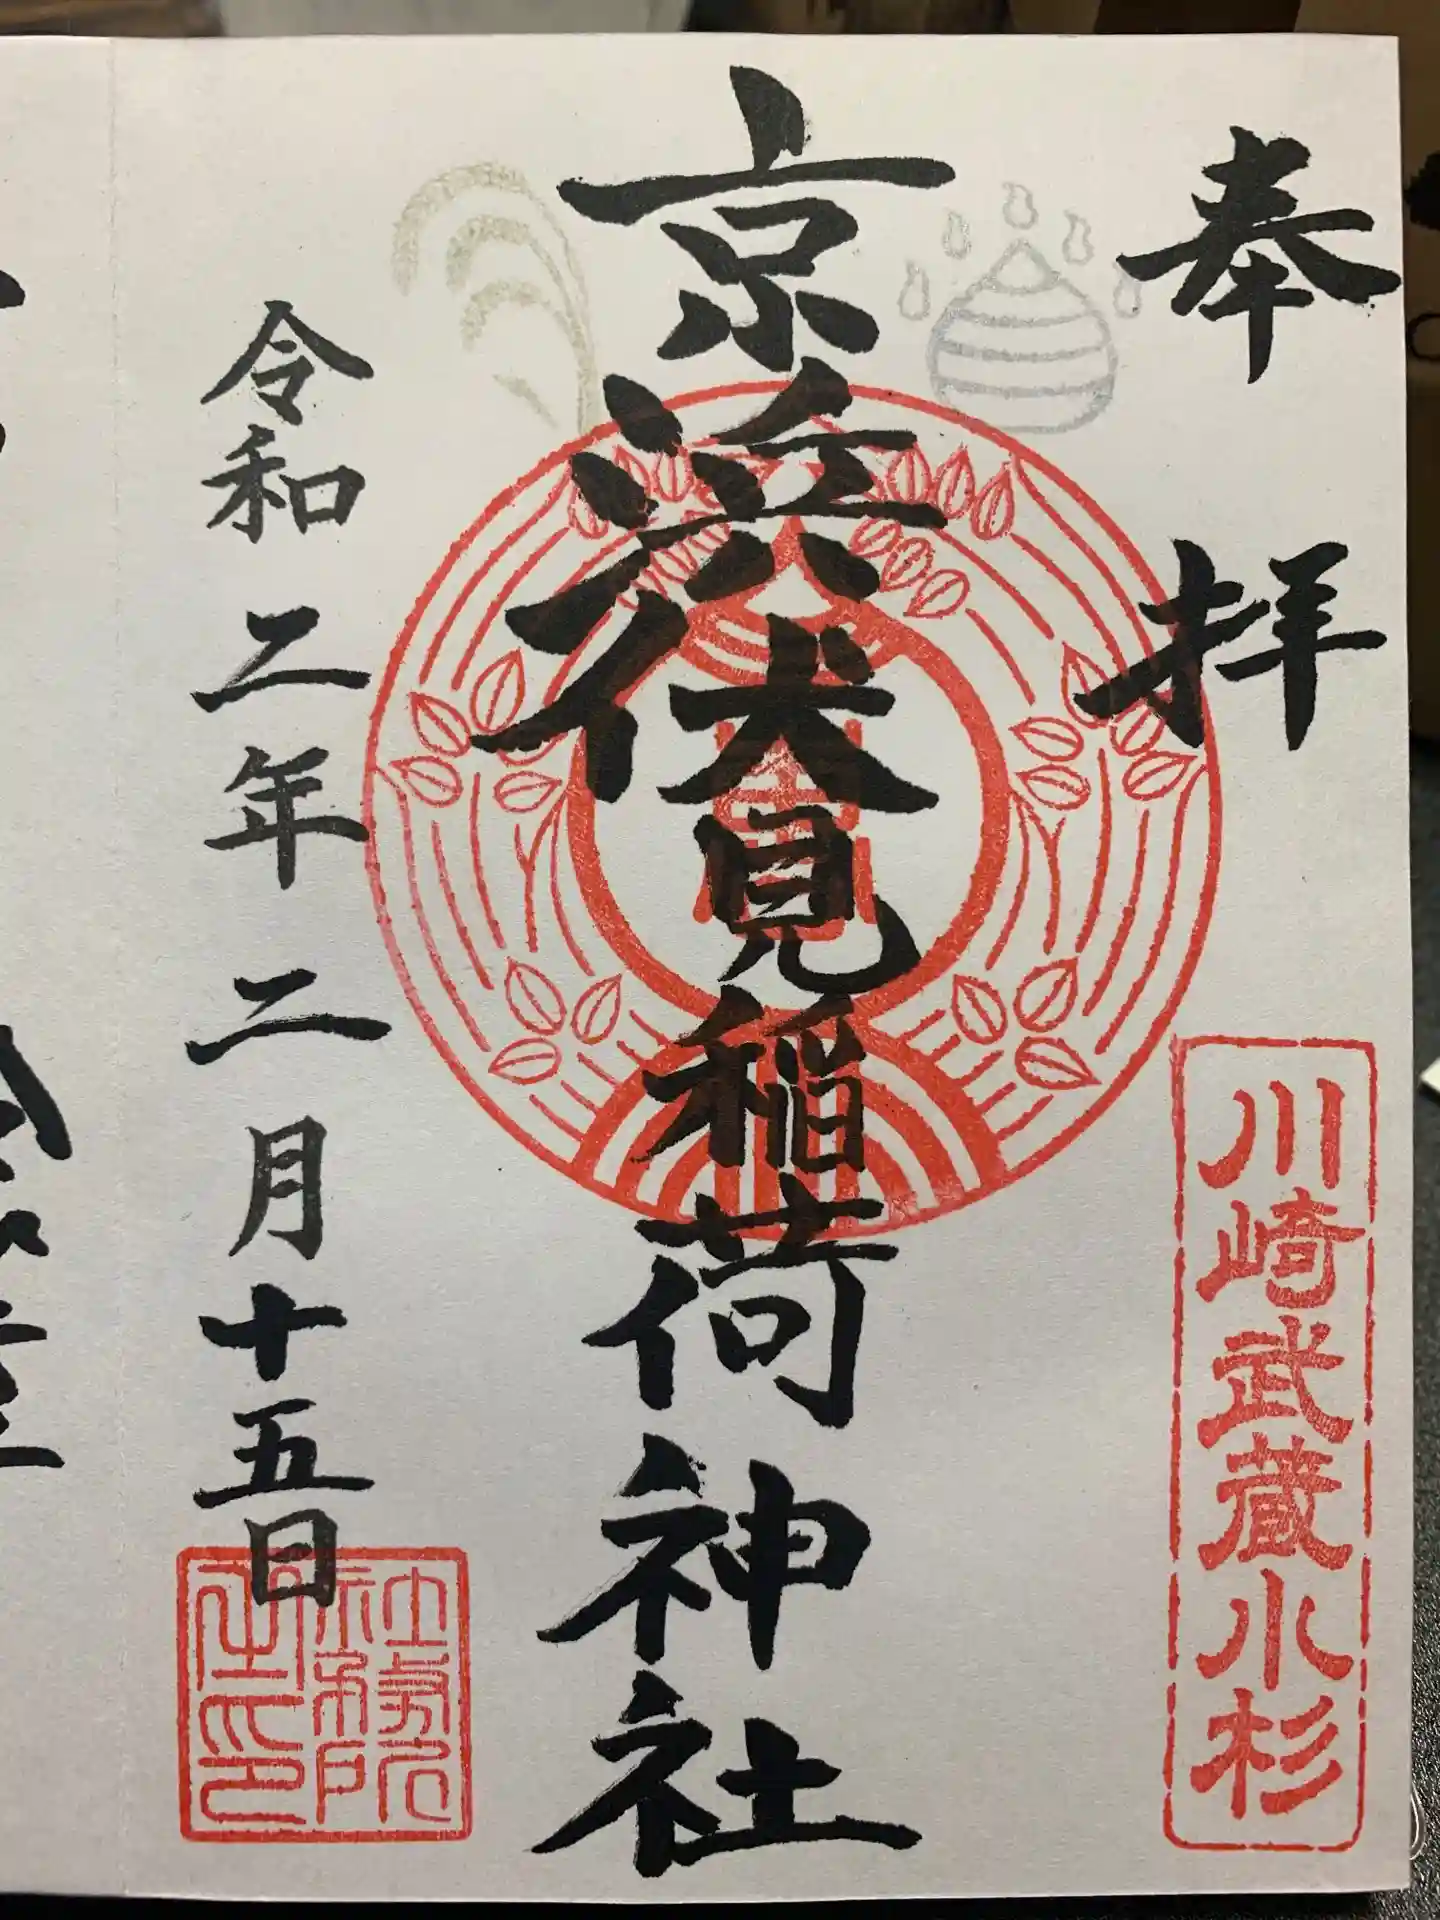 奉拝
川崎武蔵小杉
京浜伏見稲荷神社
令和二年二月十五日
社務院之印